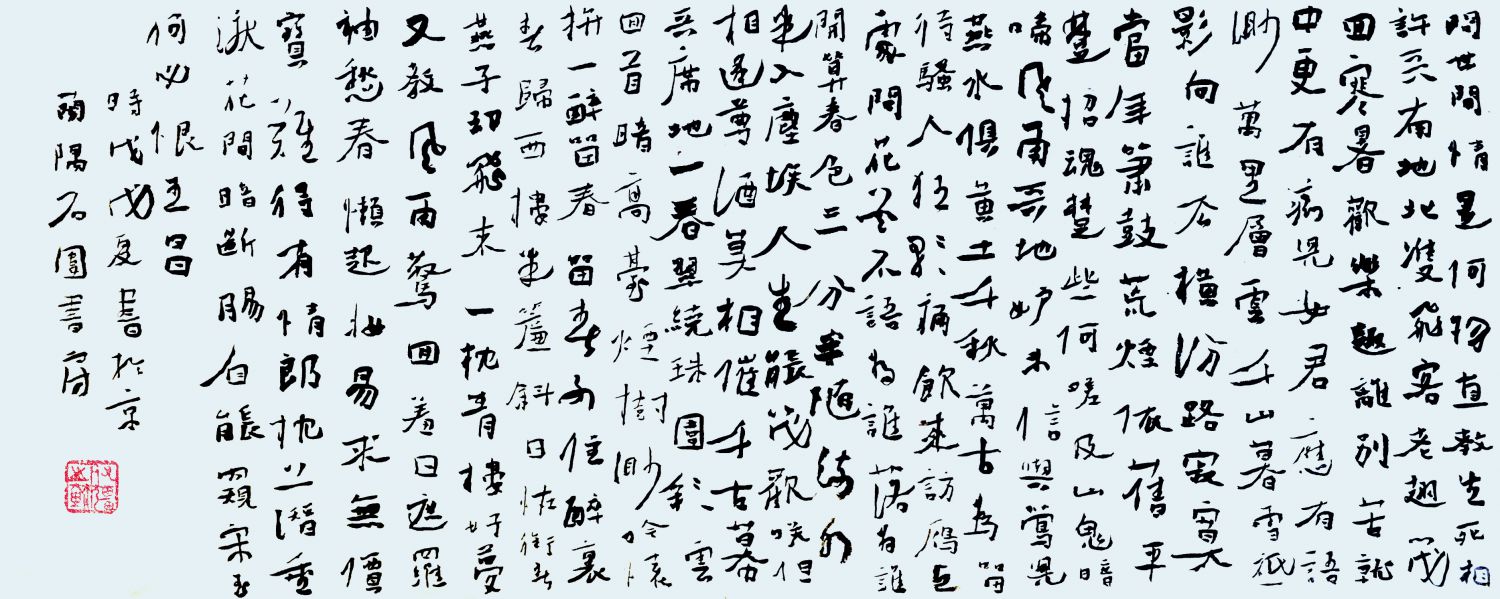 問世間情是何物直教生死相
許天南地北雙飛客老翅幾
回寒暑歡樂趣離別苦就
中更有痴兒女君應有語
渺萬里層雲千山暮雪祇
影向誰去橫汾路寂寞
當年簫鼓荒煙依舊平
楚招魂楚些何嗟及山鬼暗
啼風雨天也妒未信與鶯兒
燕子俱黃土千秋萬古為留
待騷人狂歌痛飲來訪雁丘
處問花花不語為誰落為誰
開算春色三分半隨流水
半入塵埃人生能幾歡笑但
相逢尊酒莫相催千古幕
天席地一春翠繞珠圍彩雲
回首暗高臺煙樹渺吟懷
拚一醉留春留春不住醉裏
春歸西樓半簾斜日怪銜春
燕子卻飛來一枕青樓好夢
又教風雨驚回羞日遮羅
袖愁春懶起妝易求無價
寶難得有情郎枕上潛垂
淚花間暗斷腸自能窺宋玉
何必恨王昌
時戊戌夏書於京
南隅石園書房